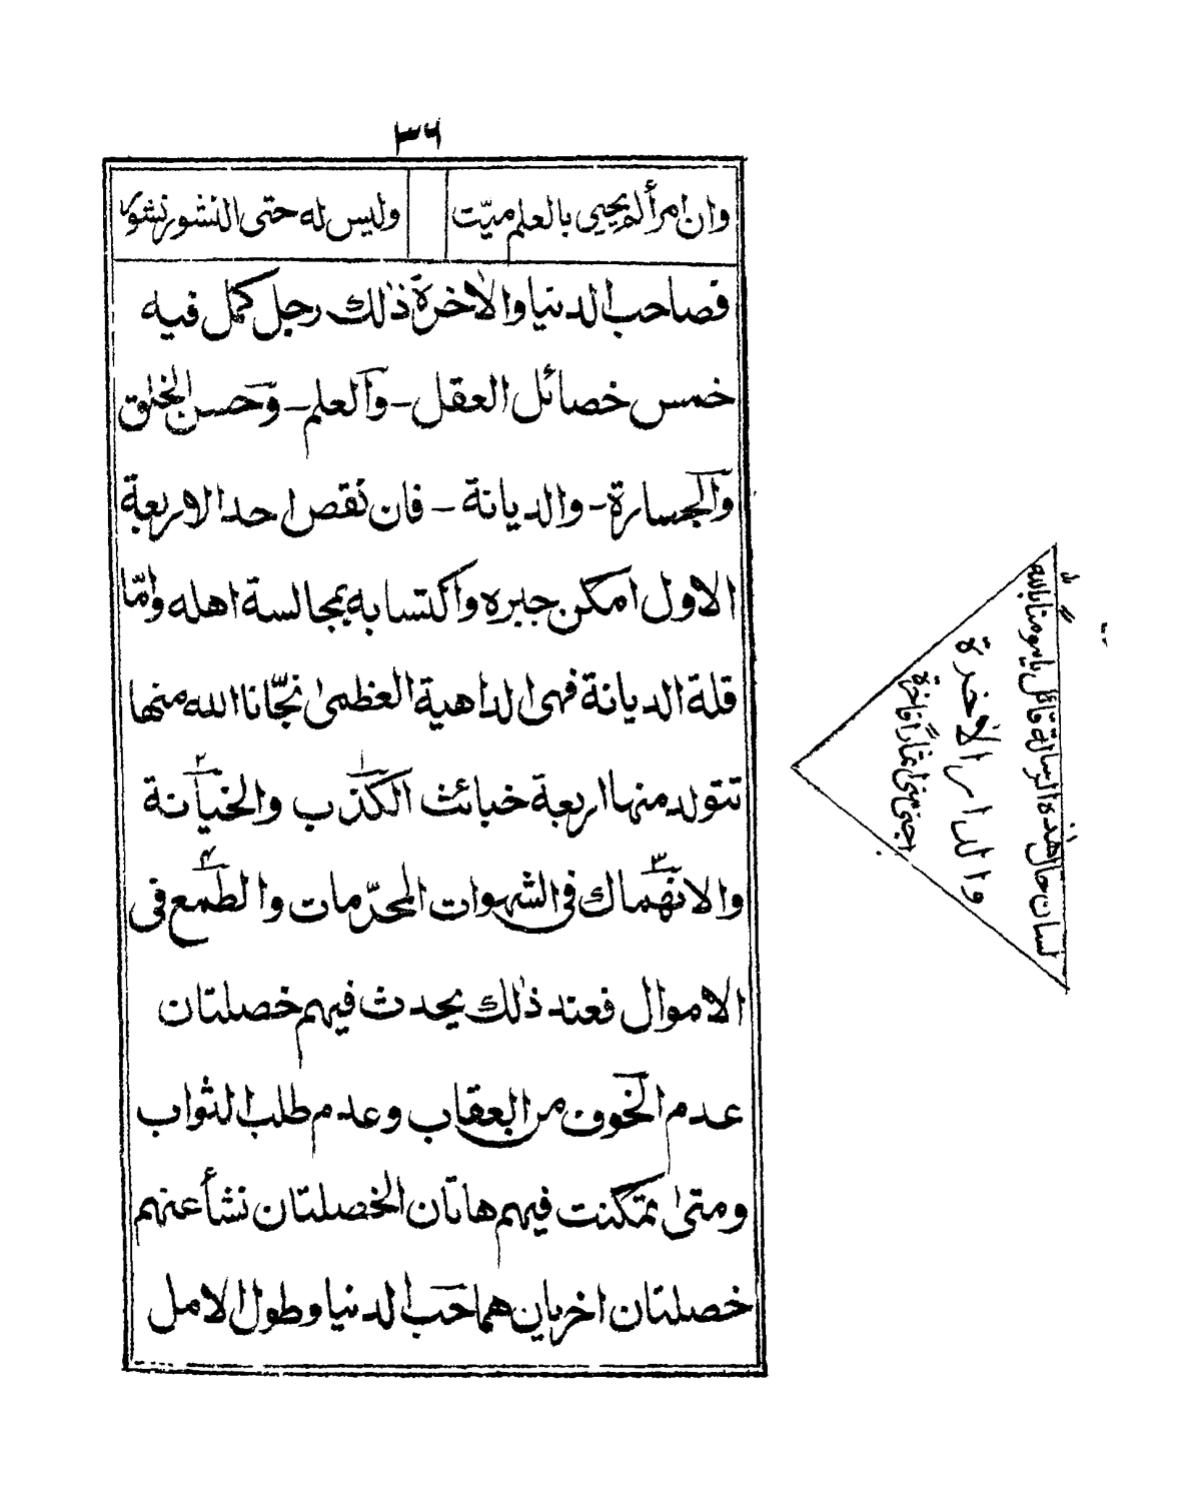 ٣٦
وان امرأ لم يحيى بالعلم ميّت وليس له حتى النشور نشور
فصاحب الدنيا والاخرة ذلك رجل كمل فيه
خمس خصائل العقل - والعلم - وحسن الخلق
والجسارة - والديانة - فان نقص احد الاربعة
الاول امكن جبره واكتسابه بمجالسة اهله وامّا
قلة الديانة فهى الداهية العظمى نجّانا الله منها
تتولد منها اربعة خبائث الكذب والخيانة
والانهماك فى الشهوات المحرّمات والطمع فى
الاموال فعند ذلك يحدث فيهم خصلتان
عدم الخوف من العقاب وعدم طلب الثواب
ومتى تمكنت فيهم هاتان الخصلتان نشأ عنهم
خصلتان اخريان هما حب الدنيا وطول الامل
لسان حال هذه الرسالة قائل يا مومنا بالله
والدار الآخرة
اجنى منى اثمارًا فاخرة